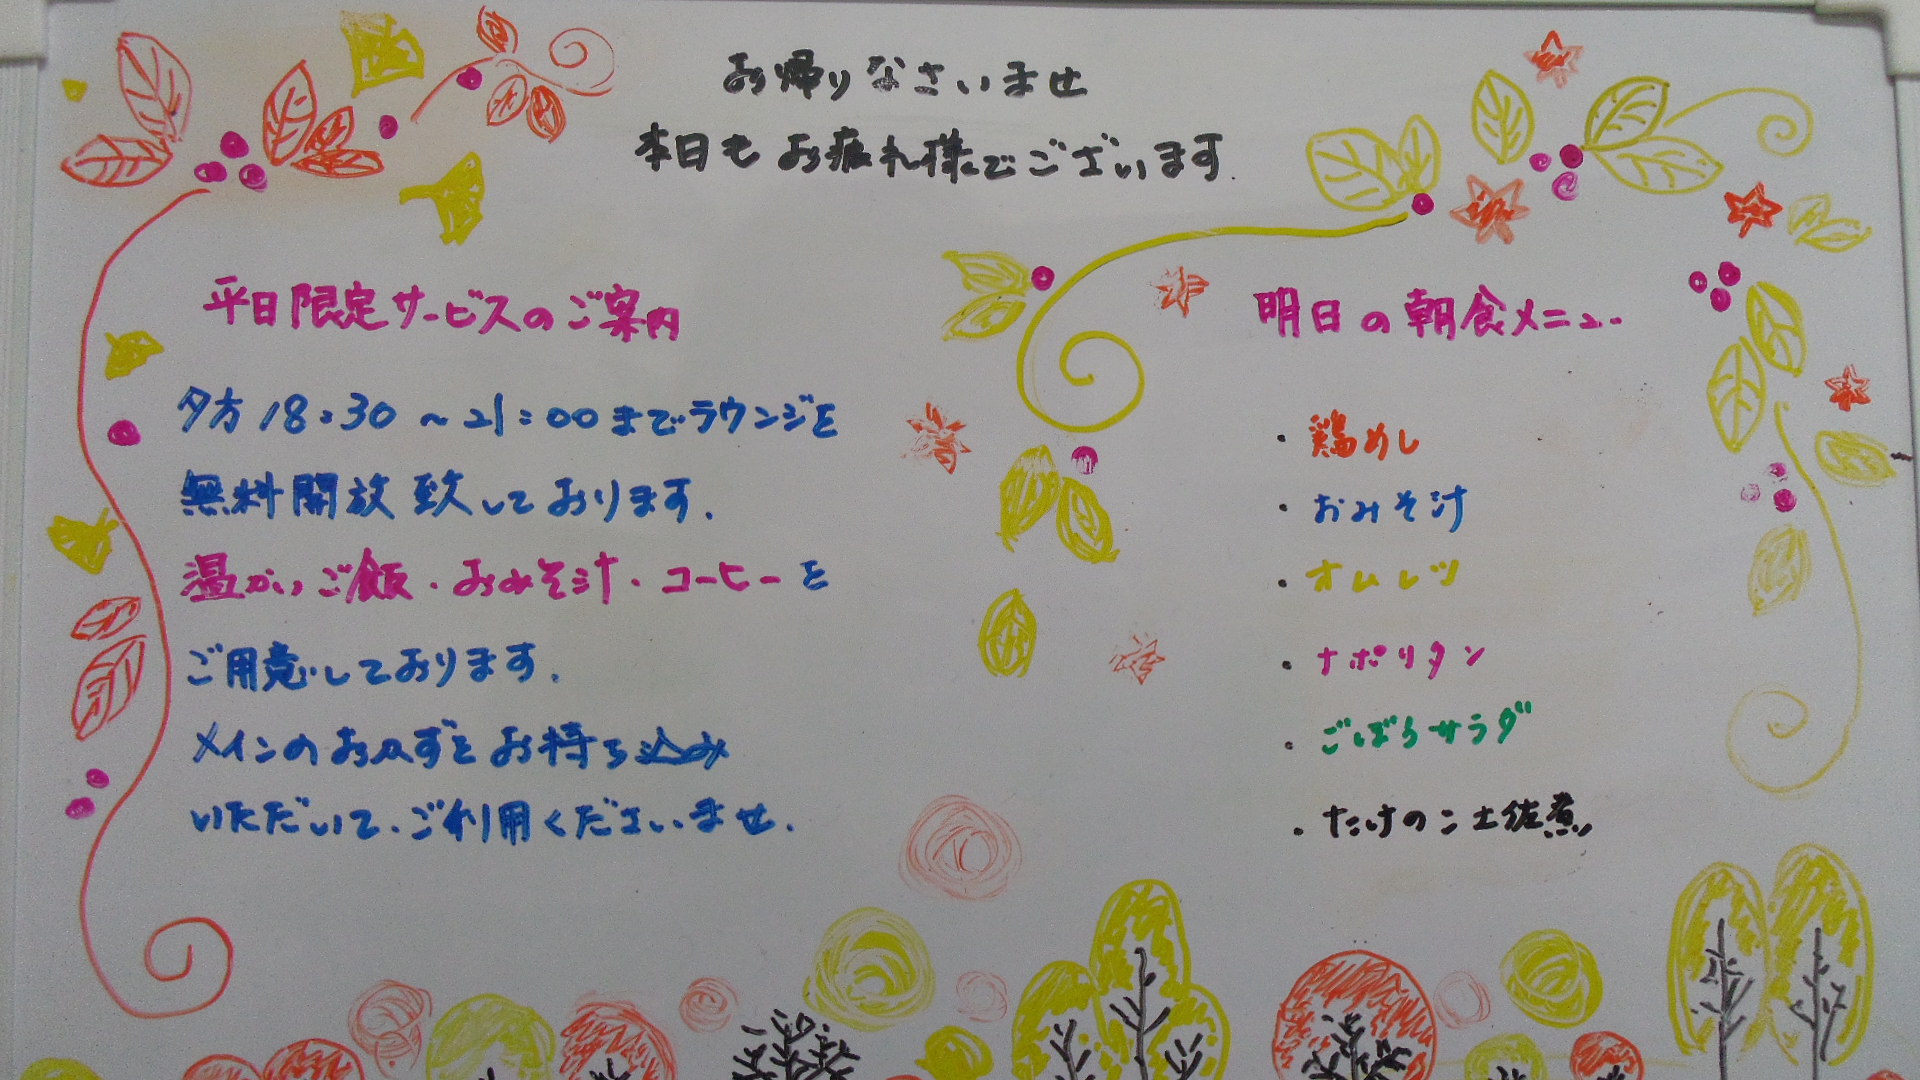 お帰りなさいませ
本日もお疲れ様でございます.
平日限定サービスのご案内
夕方18:30～21:00までラウンジを
無料開放致しております.
温かいご飯・おみそ汁・コーヒーを
ご用意しております.
メインのおかずをお持ち込み
いただいて、ご利用くださいませ.
明日の朝食メニュー
・鶏めし
・おみそ汁
・オムレツ
・ナポリタン
・ごぼうサラダ
・たけのこ土佐煮